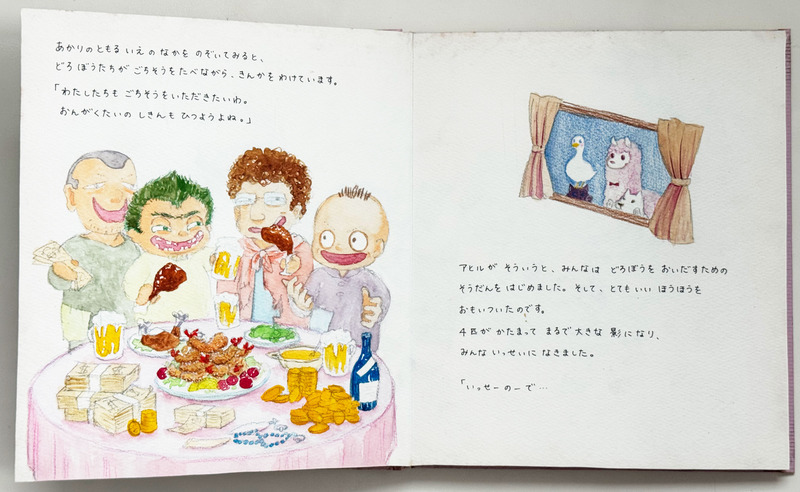 あかりのともる いえ の なかを のぞいてみると、
どろぼうたちが ごちそうをたべながら、きんかを わけています。
「わたしたちも ごちそうをいただきたいわ。
おんがくたいの しきんも ひつようよね。」
アヒルが そういうと、みんなは どろぼうを おいだすための
そうだんを はじめました。そして、とてもいい ほうほうを
おもいついたのです。
4匹が かたまって まるで大きな 影になり、
みんな いっせいに なきました。
「いっせーのーで…